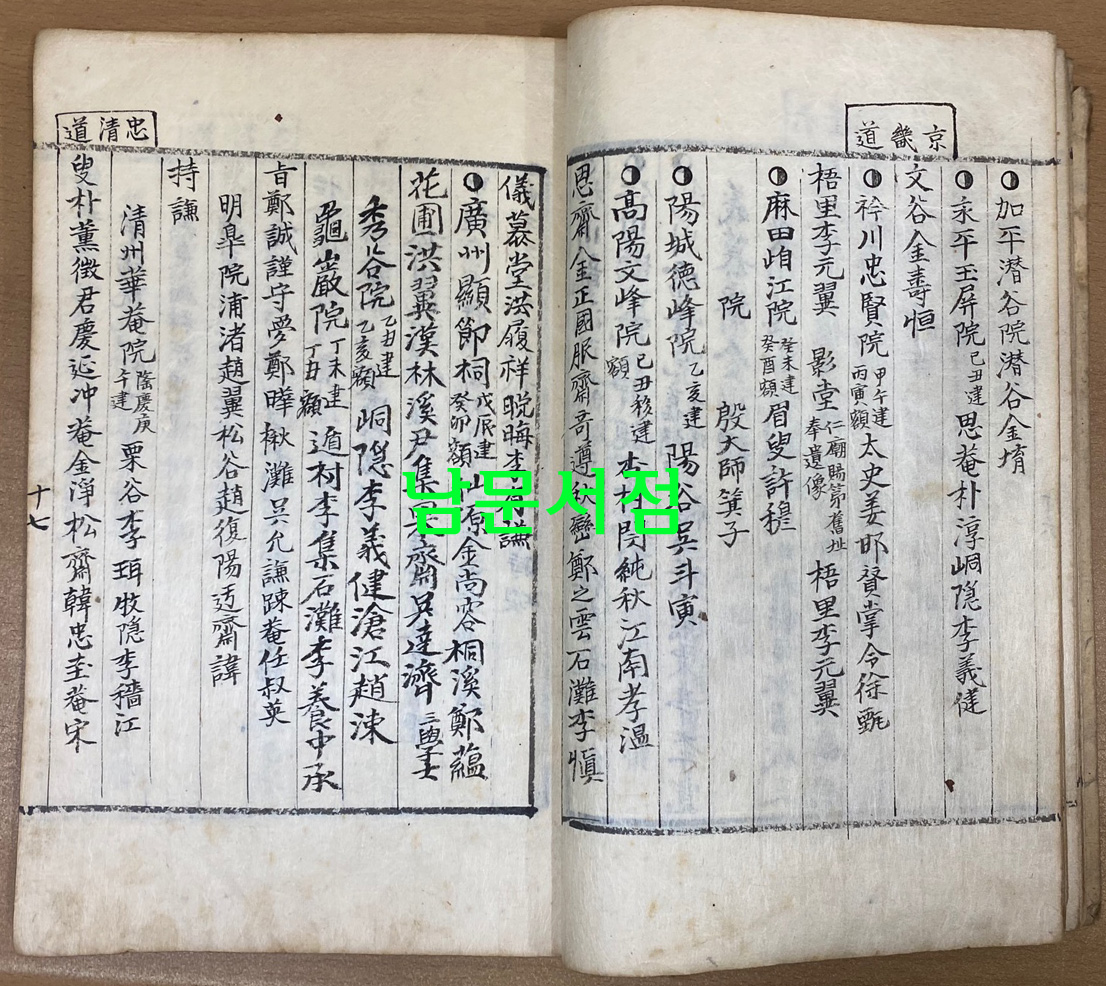 京畿道
◑加平潜谷院潜谷金堉
◑永平玉屏院己丑建思菴朴淳峒隐李義健
文谷金壽恒
◑衿川忠賢院甲午建丙寅額太史姜邯賛掌令徐甄
梧里李元翼 影堂仁廟賜第舊址奉遺像 梧里李元翼
◑麻田湘江院癸未建癸酉額眉叟許穆
院 殷大師箕子
◑陽城徳峰院乙亥建陽谷吳斗寅
◑高陽文峰院己丑移建額杏村閔純秋江南孝温
思齋金正國服齋奇遵秋巒鄭之雲石灘李愼
儀慕堂洪履祥晩晦李謙
◑廣州顯節祠戊辰建癸卯額金尚容桐溪鄭蘊
花圃洪翼漢林溪尹集齋吳達濟三學士
秀谷院乙丑建乙亥額峒隐李義健滄江趙涑
龜巖院丁未建丁丑額遁村李集石灘李養中承
旨鄭誠謹守夢鄭曄楸灘吳允謙踈菴任叔英
明皐院浦渚趙翼松谷趙復陽迃齋諱
持謙
忠清道
清州華菴院隆慶庚午建栗谷李珥牧隐李穡江
叟朴薫徴君慶延冲菴金淨松齋韓忠圭菴宋
十七
남문서점